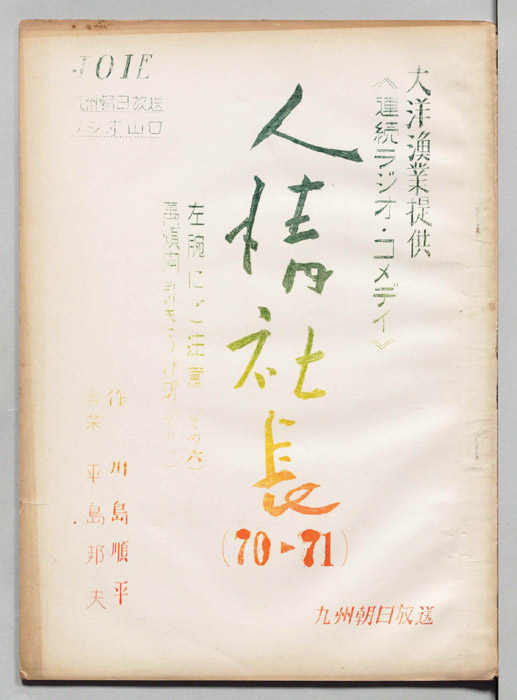 大洋漁業提供
《連続ラジオ・コメディ》
人情社長
(70▶71)
左腕にご注意(その六)
萬傾向引きうけ所
作 川島順平
音楽 平島邦夫
JOIE
九州朝日放送
ラジオ山口
九州朝日放送